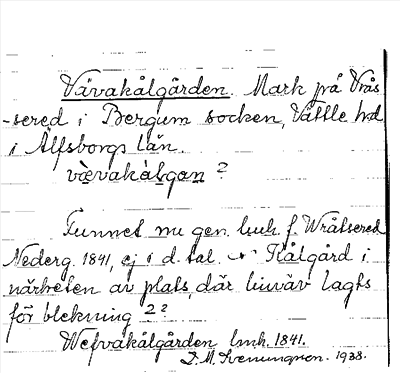 Vävakålgården. Mark på Vrås
-sered i Bergum socken, Vättle hd
i Älfsborgs län.
vävakålgan ?
Funnet nu gen. lmh. f. Wråssered
Nederg. 1841, ej i d. tal. Kålgård i
närheten av plats, där linväv lagts
för blekning ??
Wefvakålgården lmh. 1841.
D. M. Svenungsson. 1938.